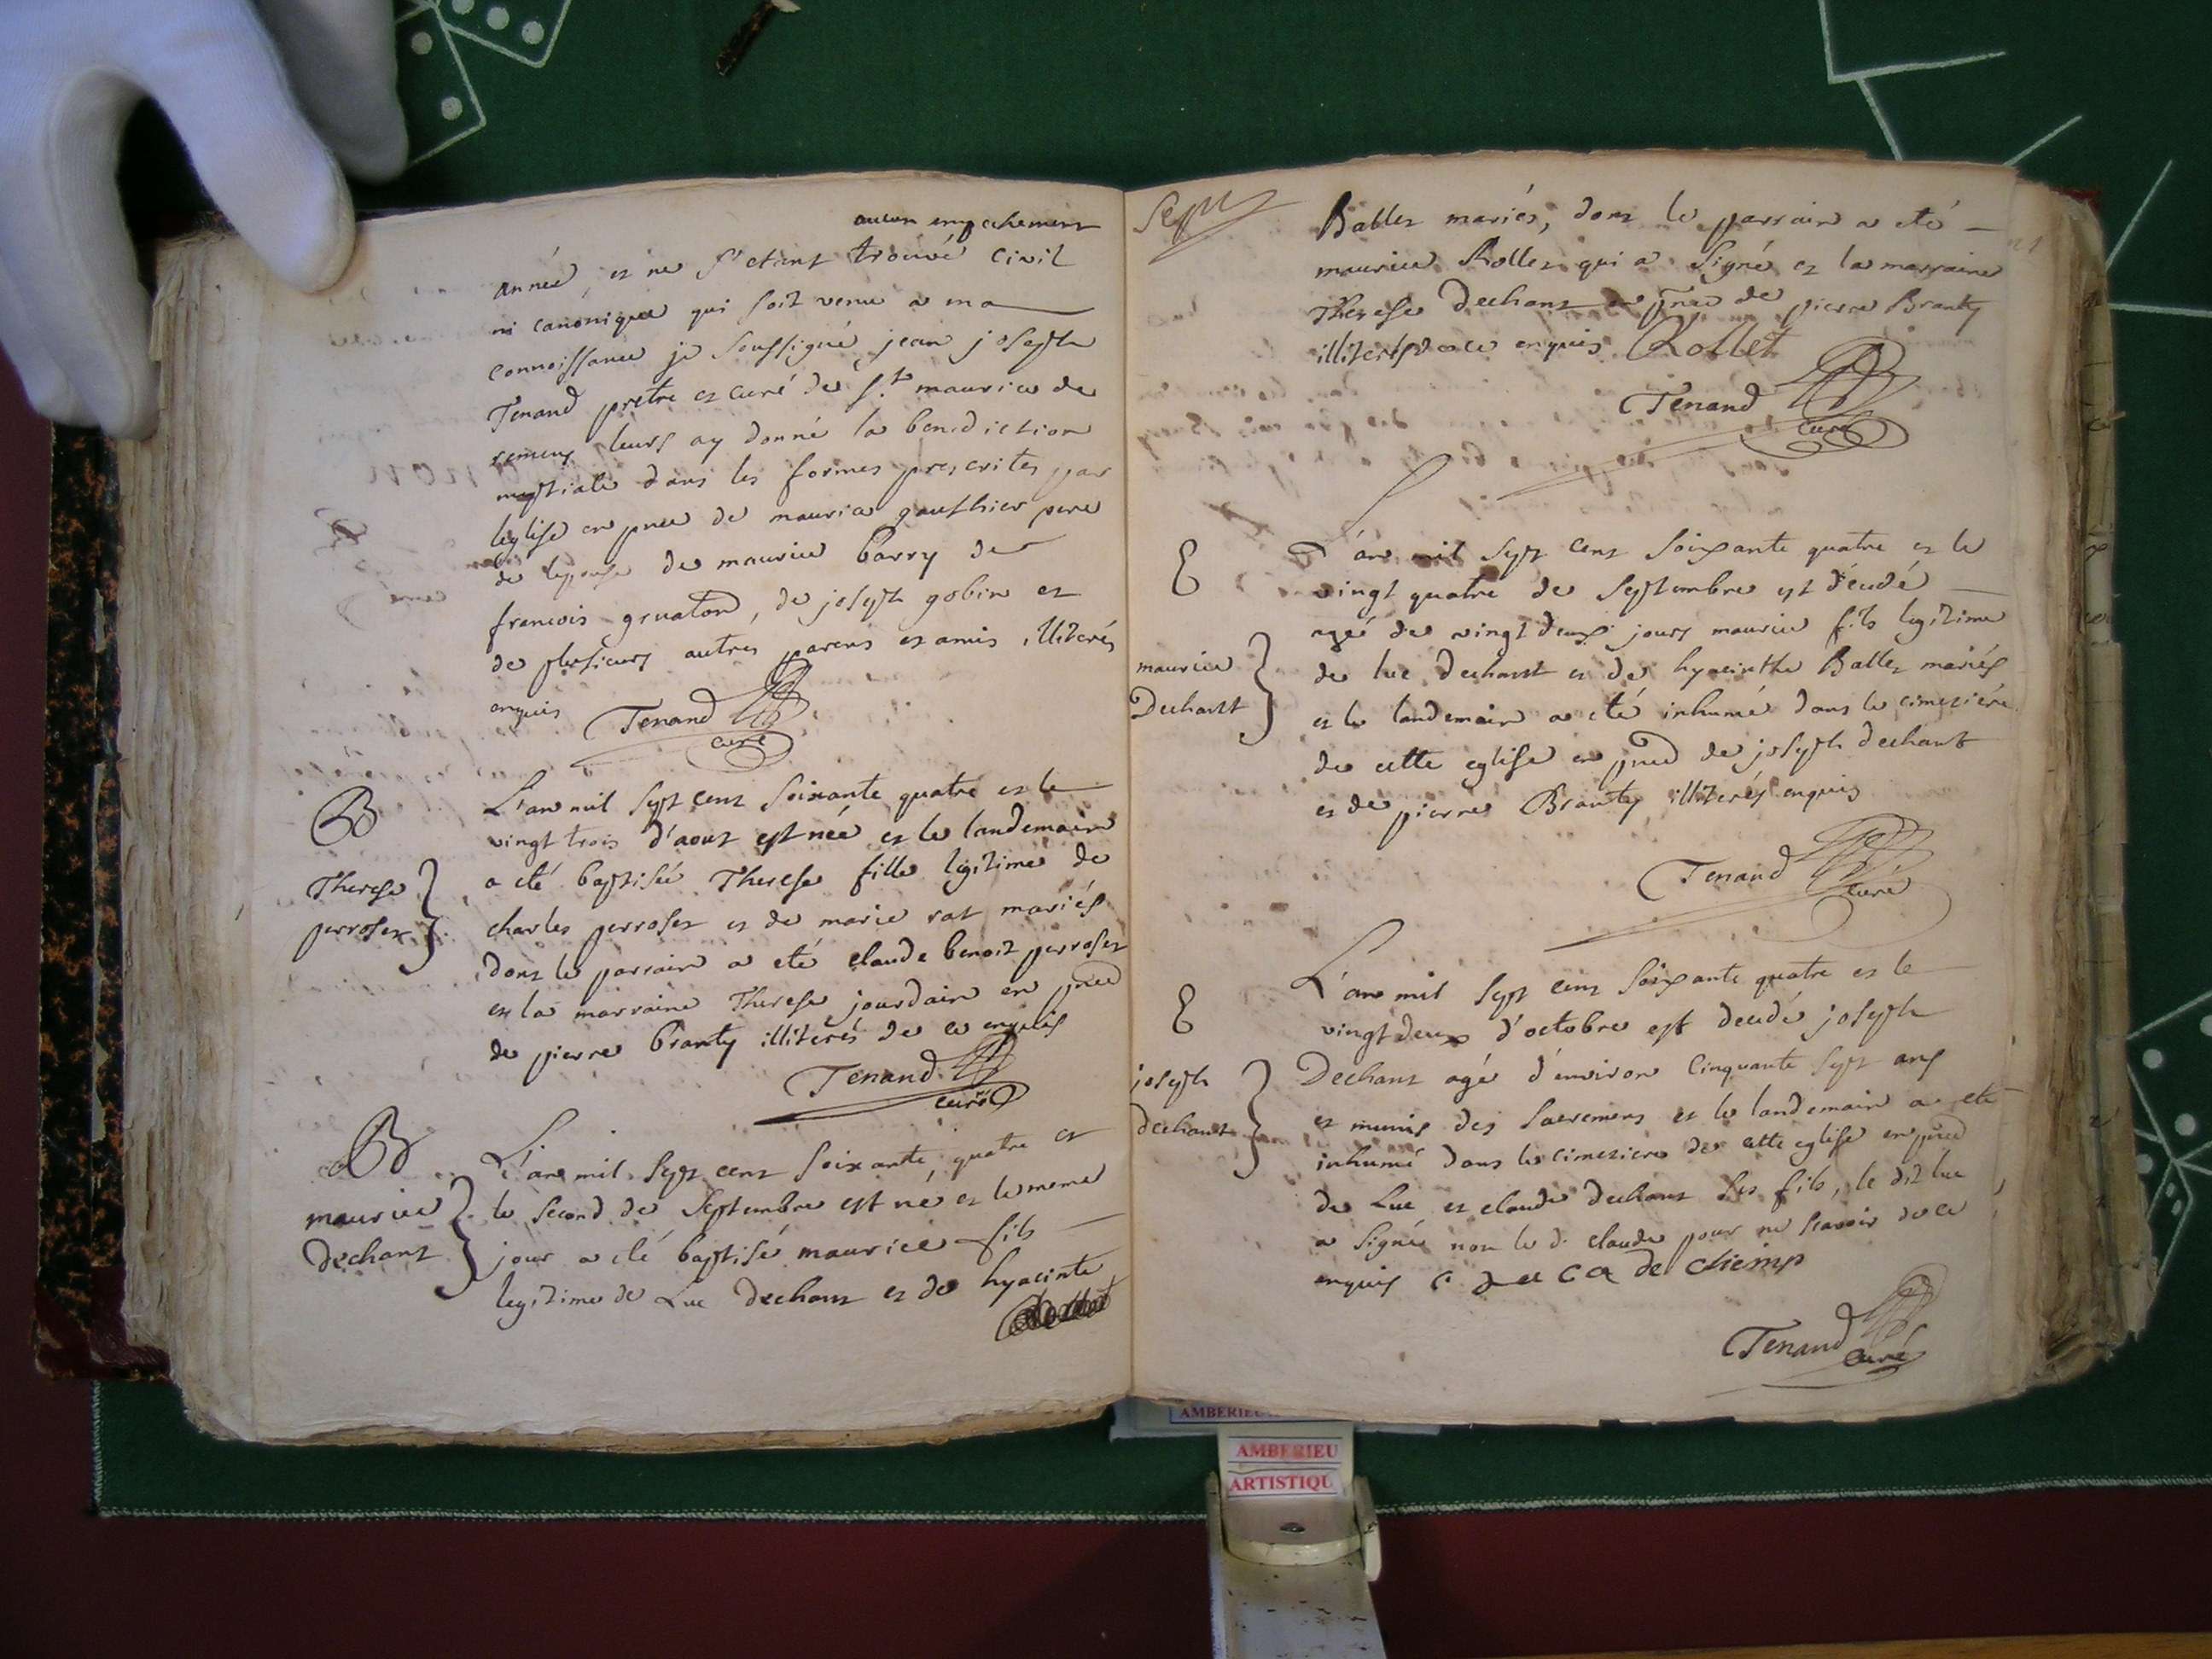 aucun empechement
année, et ne s'etant trouvé civil
ni canonique qui soit venu a ma
connoissance je soussigné jean joseph
Tenand pretre et curé de st maurice de
remens leurs ay donné la benediction
nuptiale dans les formes prescrites par
leglise en pnce de maurice gauthier pere
de lepouse de maurice barry de
francois gruaton, de joseph gobin et
de plusieurs autres parens et amis illiterés
enquis Tenand
curé
B
L'an mil sept cent soixante quatre et le
vingt trois d'aout est née et le landemain
Therese
perroset
a été baptisée Therese fille legitime de
charles perroset et de marie rat mariés
dont le parrain a eté claude benoit perroset
et la marraine Therese jourdain en pnce
de pierre branty illiterés de ce enquis
Tenand
curé
B
L'an mil sept cent soixante quatre et
maurice
dechant
le second de septembre est né et le meme
jour a eté baptisé maurice fils
legitime de Luc dechant et de hyacinte
Sept
Ballet mariés, dont le parrain a eté
maurice Rollet qui a signé et la marraine
Therese dechant en pnce de pierre Branty
illiterés de ce enquis Rollet
Tenand
curé
L'an mil sept cent soixante quatre et le
vingt quatre de septembre est décedé
agé de vingt deux jours maurice fils legitime
maurice
Dechant
de luc dechant et de hyacinthe Ballet mariés
et le landemain a eté inhumé dans le cimetiére
de cette eglise en pnce de joseph dechant
et de pierre Branty illiterés enquis
Tenand
curé
L'an mil sept cent soixante quatre et le
vingt deux d'octobre est decedé joseph
joseph
dechant
Dechant agé d'environ cinquante sept ans
et munis des sacremens et le landemain a eté
inhumé dans le cimetiere de cette eglise en pnce
de Luc et claude dechant ses fils, le dit luc
a signé non le d. claude pour ne scavoir de ce
enquis
de chemp
Tenand
curé
AMBERIEU
ARTISTIQU